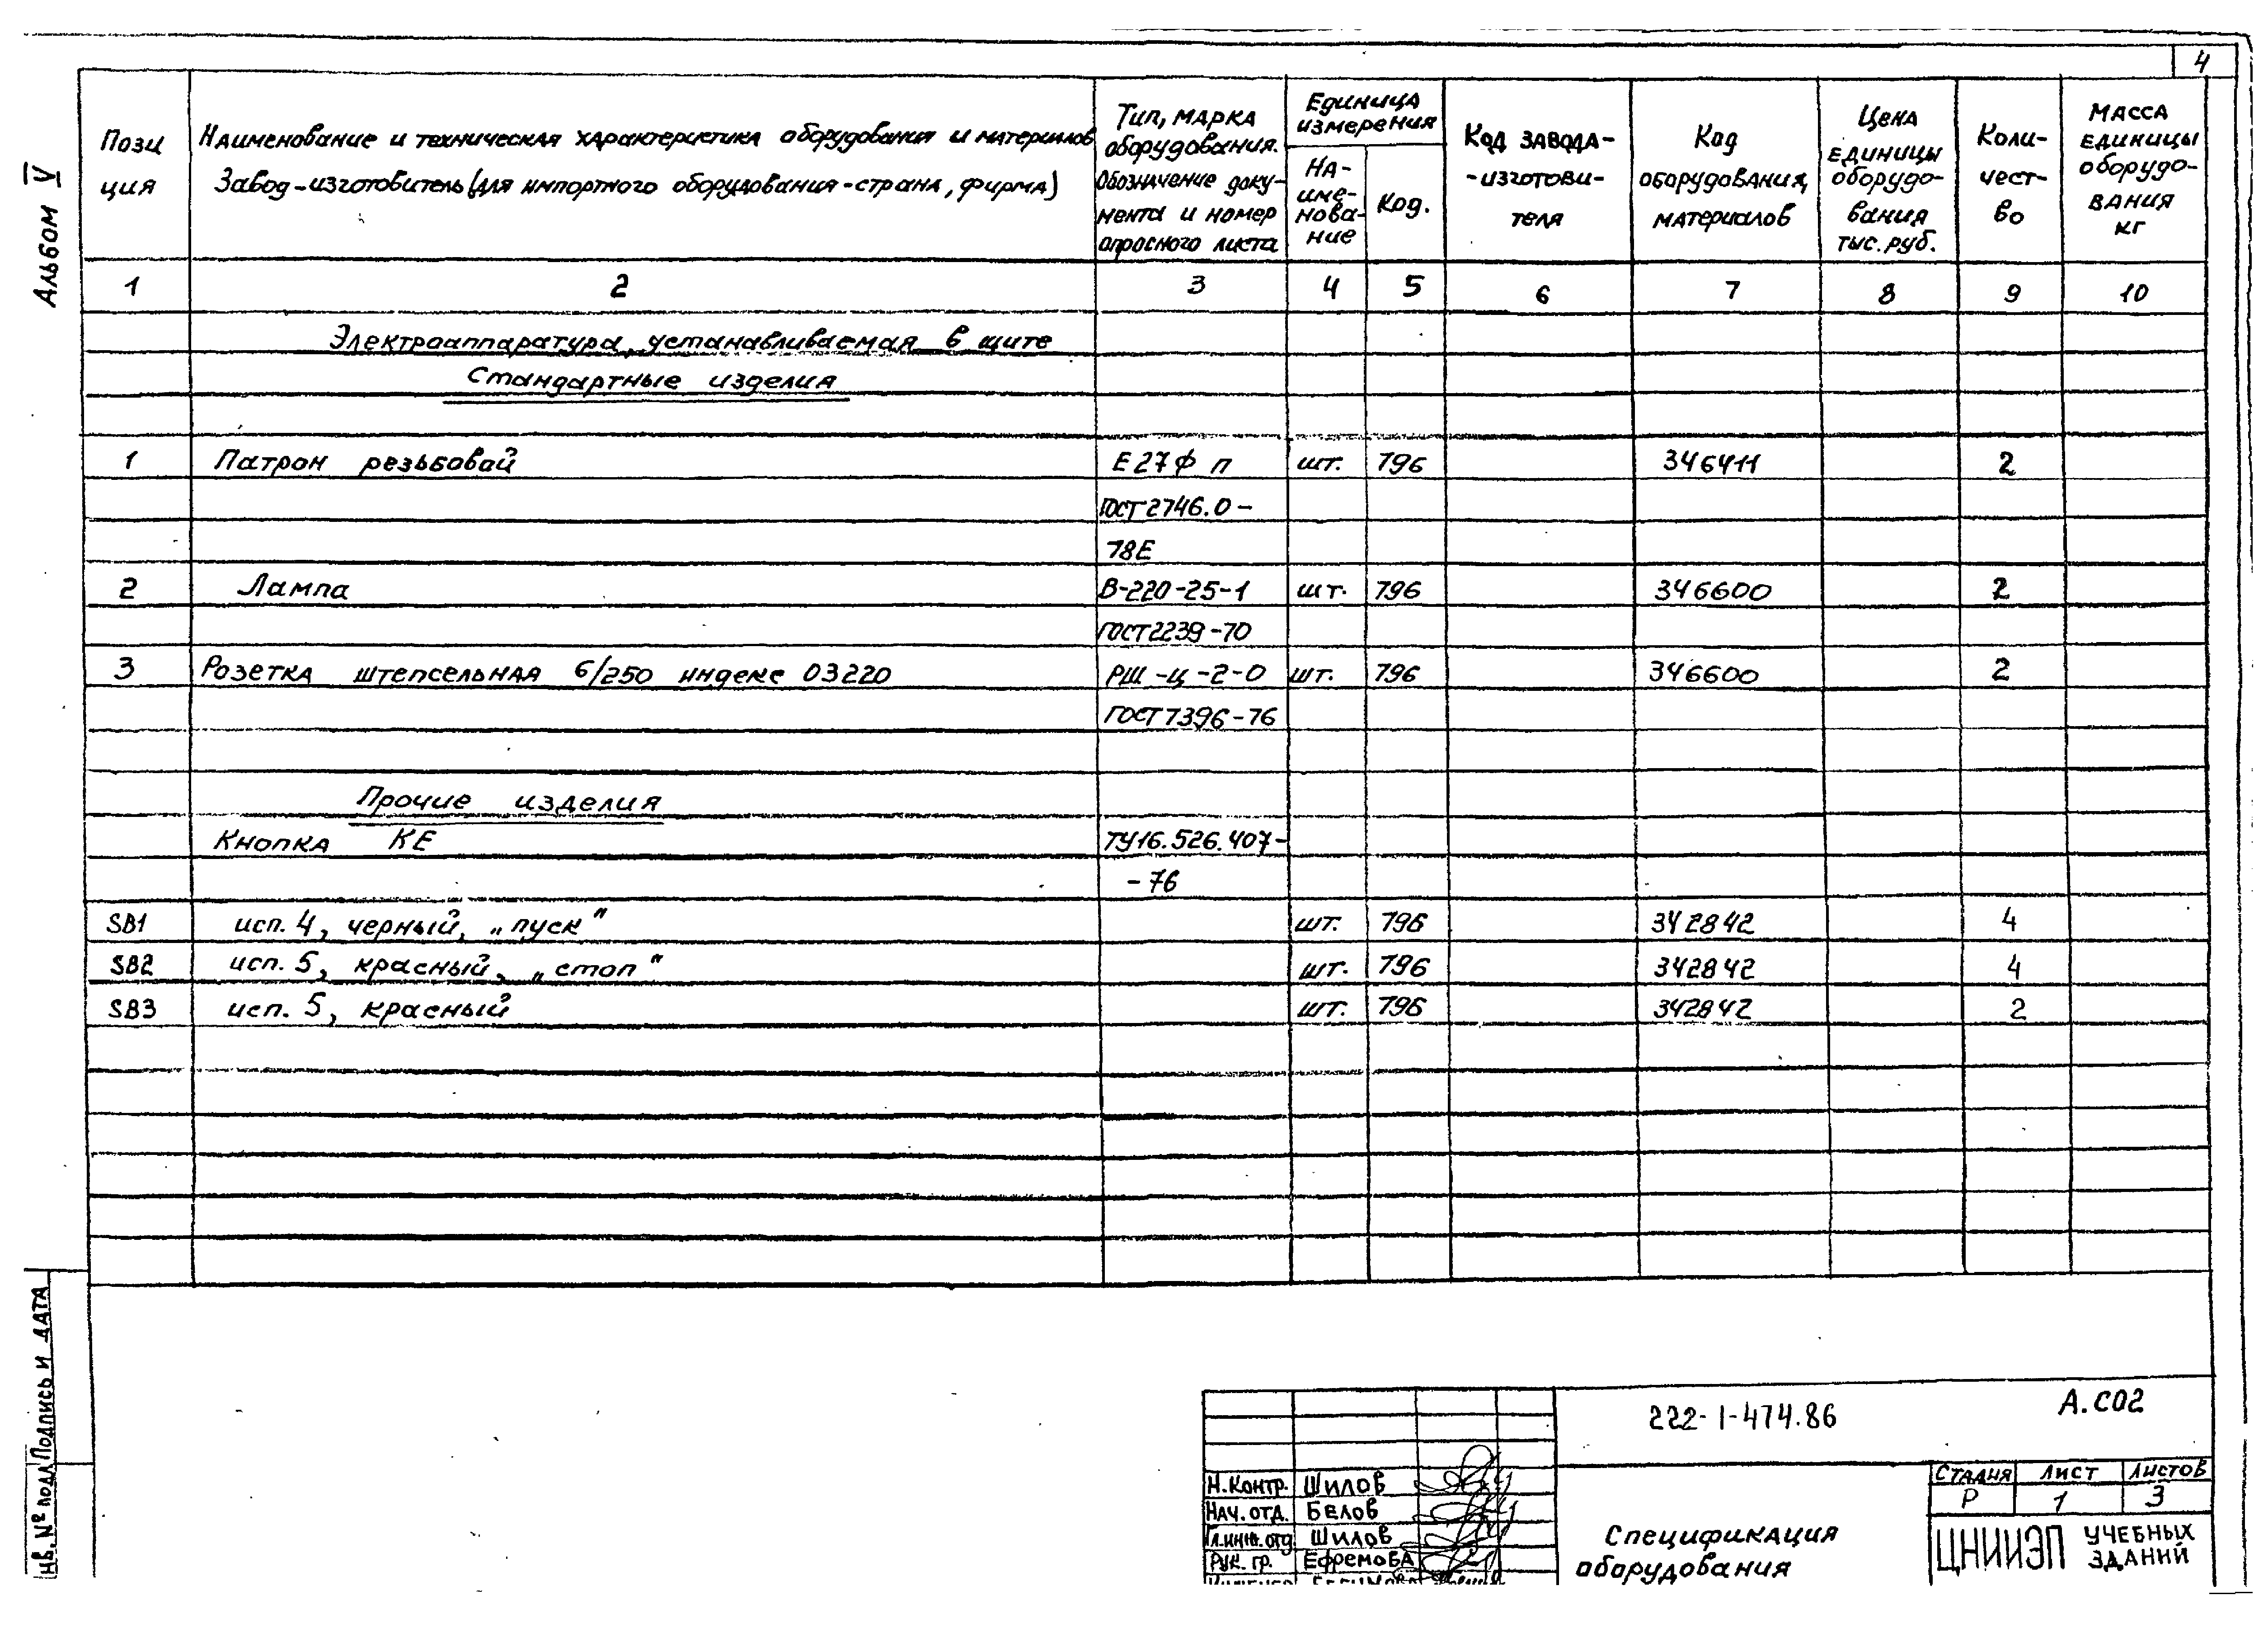 4
Альбом V
Пози
ция
Наименование и техническая характеристика оборудования и материалов
Завод-изготовитель (для импортного оборудования-страна, фирма)
Тип, марка
оборудования.
Обозначение доку-
мента и номер
опросного листа
Единица
измерения
На-
име-
нова-
ние
Код.
Код завода-
-изготови-
теля
Код
оборудования,
материалов
Цена
единицы
оборудо-
вания
тыс. руб.
Коли-
чест-
во
Масса
единицы
оборудо-
вания
кг
1 2 3 4 5 6 7 8 9 10
Электроаппаратура, устанавливаемая в щите
Стандартные изделия
1 Патрон резьбовай Е27Ф п шт. 796 346411 2
ГОСТ 2746.0-
78Е
2 Лампа В-220-25-1 шт. 796 346600 2
ГОСТ 2239-70
3 Розетка штепсельная 6/250 индекс 03220 РШ-ц-2-0 шт. 796 346600 2
ГОСТ 7396-76
Прочие изделия
Кнопка КЕ ТУ16.526.407-
-76
SB1 исп. 4, черный, „пуск" шт. 796 342842 4
SB2 исп. 5, красный, „стоп" шт. 796 342842 4
SB3 исп. 5, красный шт. 796 342842 2
Подпись и дата
нв. № подл
222-1-474.86 А.СО2
Н.контр. Шилов
Нач. отд. Белов
Гл.инж.отд Шилов
Рук. гр. Ефремова
Спецификация
оборудования
Стадия Лист Листов
Р 1 3
ЦНИИЭП учебных
зданий